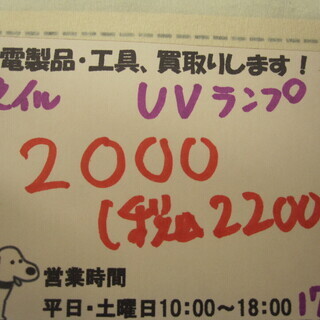 電製品・工具、買取りします!
イル UVランプ
2000
(税込2200
営業時間
平日・土曜日10:00~18:00 17